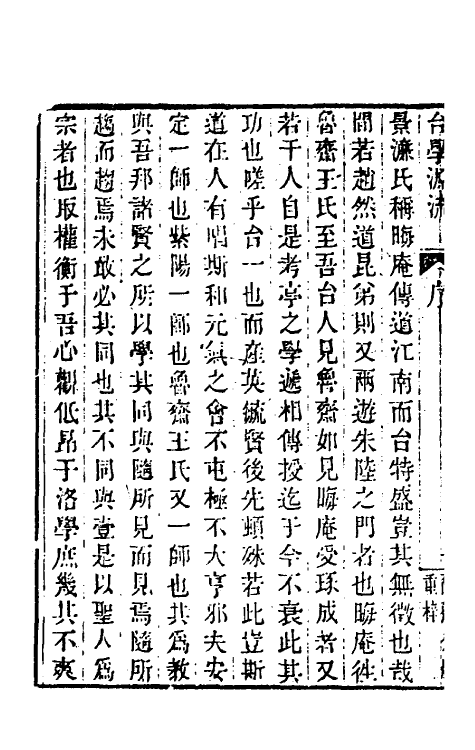 台學源流 序
景濂氏稱晦庵傳道江南而台特盛豈其無徵也哉
間若趙然道昆弟則又兩遊朱陸之門者也晦庵徃
魯齋王氏至吾台人見魯齋如見晦庵受琢成者又
若干人自是考亭之學遞相傳授迄于今不衰此其
功也嗟乎台一也而產英毓賢後先頓殊若此豈斯
道在人有唱斯和元氣之會不屯極不大亨邪夫安
定一師也紫陽一師也魯齋王氏又一師也其爲教
與吾邦諸賢之所以學其同與隨所見而見焉隨所
趨而趨焉未敢必其同也其不同與壹是以聖人爲
宗者也取權衡于吾心觀低昂于洛學庶幾其不爽
重梓